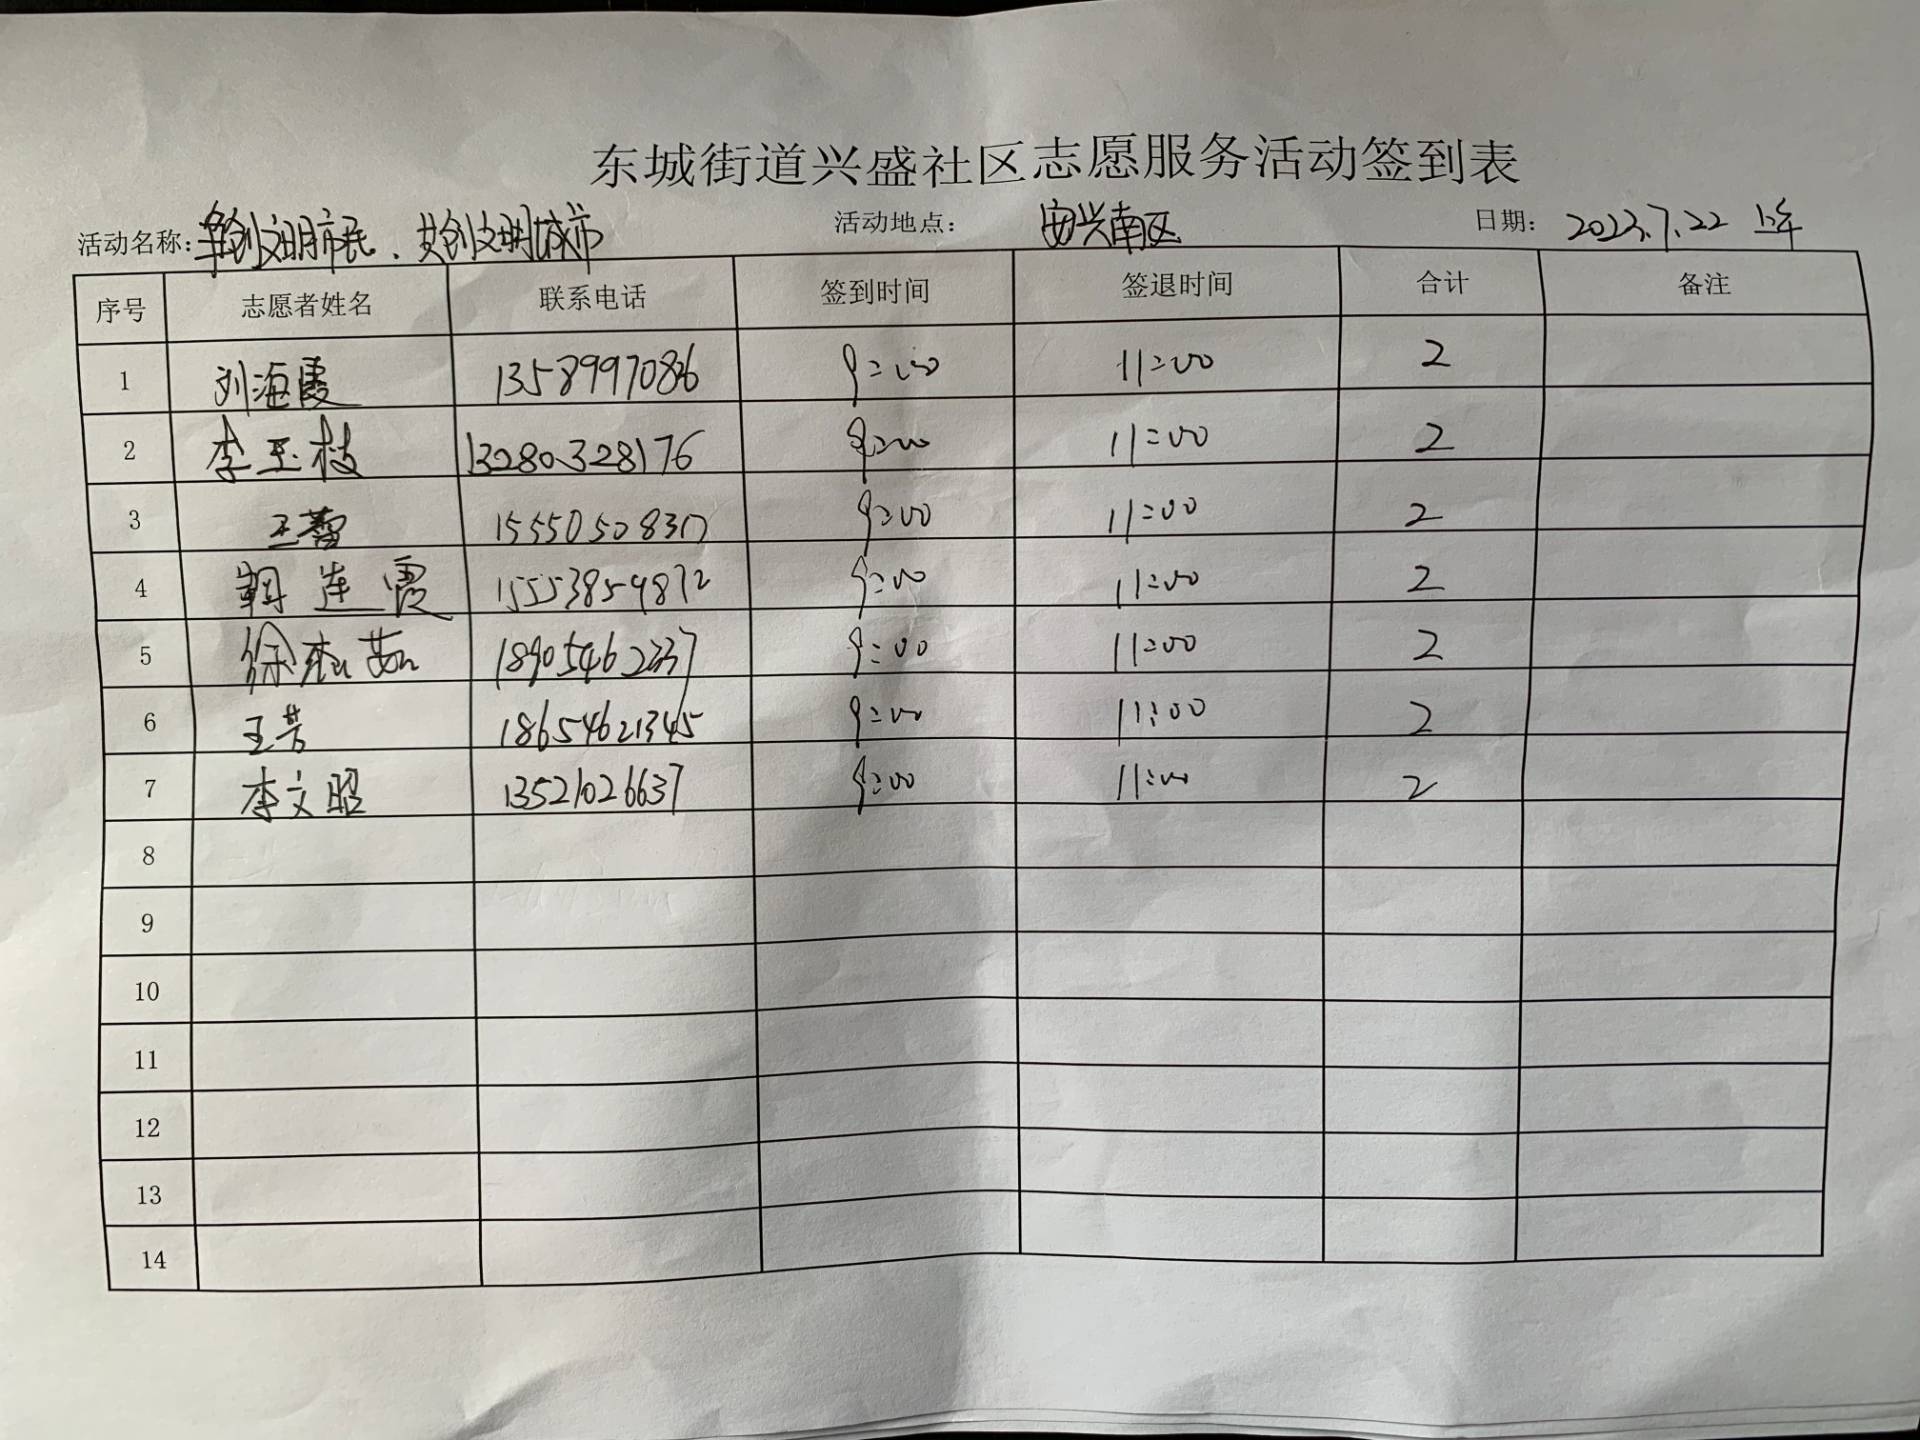 东城街道兴盛社区志愿服务活动签到表
活动名称：争创文明市民、共创文明城市 活动地点： 安兴南区 日期： 2023.7.22 上午
序号 志愿者姓名 联系电话 签到时间 签退时间 合计 备注
1 刘海霞 13589970836 9:00 11:00 2
2 李玉枝 13280328176 9:00 11:00 2
3 王蕾 15550508317 9:00 11:00 2
4 连霞 15553859872 9:00 11:00 2
5 徐 茹 18905462337 9:00 11:00 2
6 王芳 18654621345 9:00 11:00 2
7 李文昭 13521026637 9:00 11:00 2
8
9
10
11
12
13
14